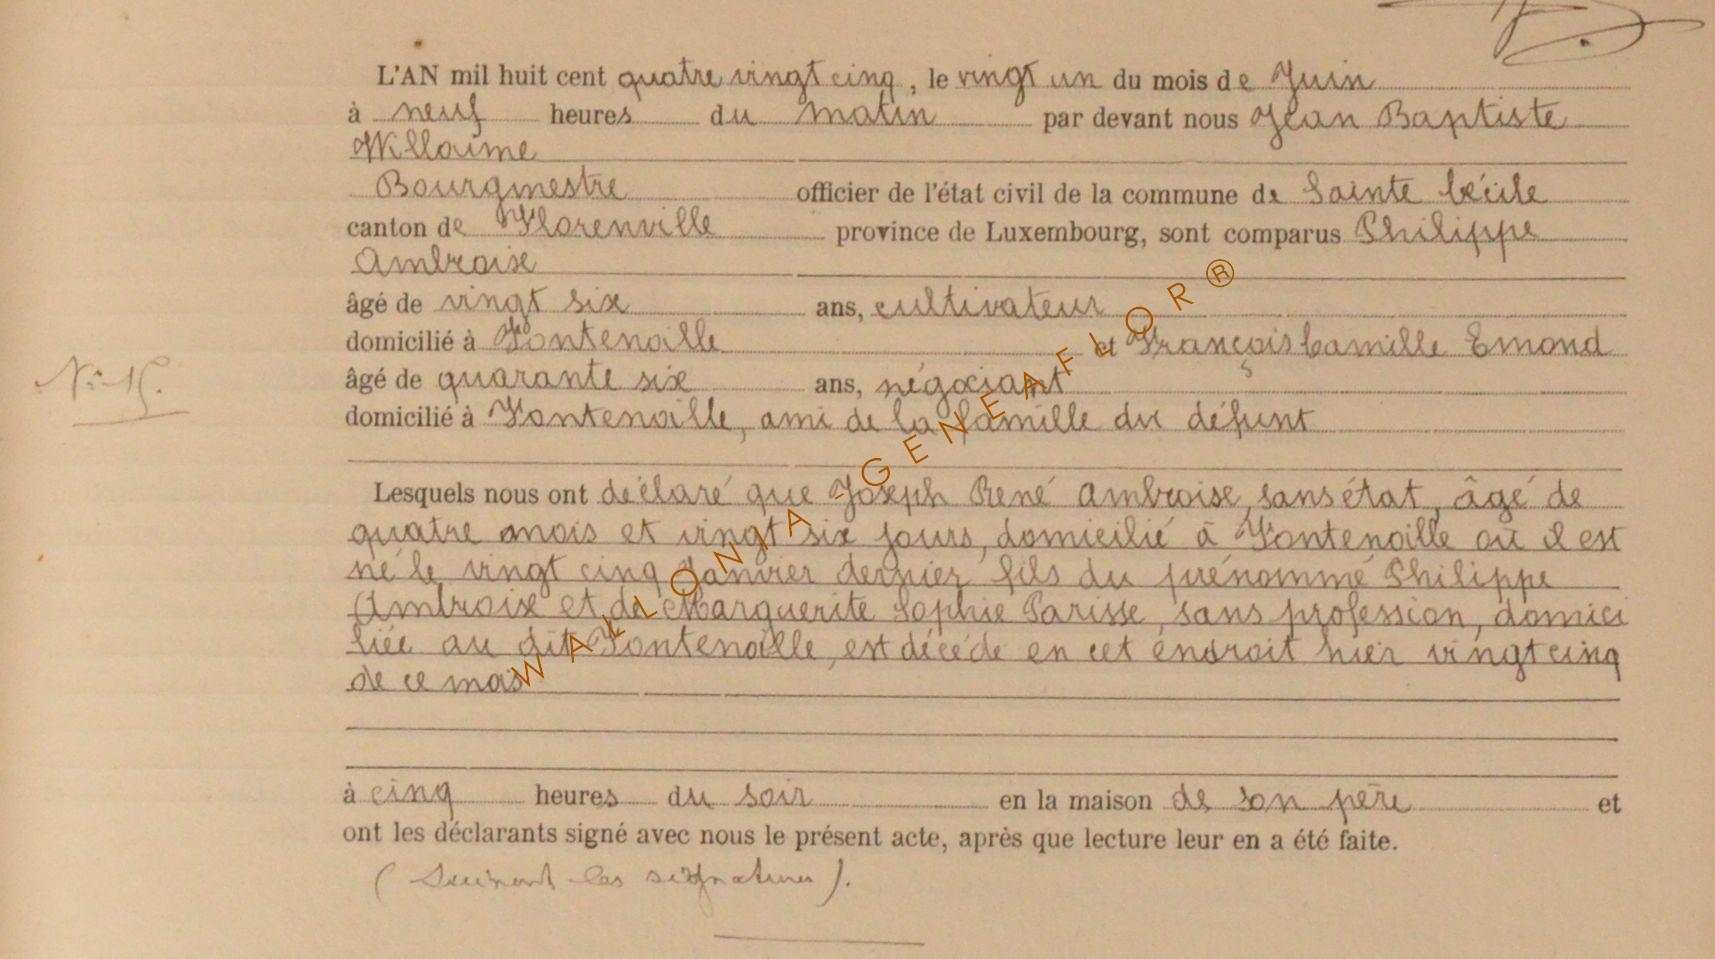 L'AN mil huit cent quatre vingt cinq, le vingt un du mois de Juin
à neuf heures du matin par devant nous Jean Baptiste
Willaime
Bourgmestre officier de l'état civil de la commune de Sainte Cécile
canton de Florenville province de Luxembourg, sont comparus Philippe
Ambroise
âgé de vingt six ans, cultivateur
domicilié à Fontenoille et François Camille Emond
N° 15.
âgé de quarante six ans, négociant
domicilié à Fontenoille, ami de la famille du défunt
Lesquels nous ont déclaré que Joseph René Ambroise, sans état, âgé de
quatre mois et vingt six jours, domicilié à Fontenoille où il est
né le vingt cinq Janvier dernier fils du prénommé Philippe
Ambroise et de Marguerite Sophie Parisse, sans profession, domici
liée au dit Fontenoille, est décédé en cet endroit hier vingt cinq
de ce mois
à cinq heures du soir en la maison de son père et
ont les déclarants signé avec nous le présent acte, après que lecture leur en a été faite.
(Suivent les signatures).
WALLONIA - GENEAFLOR®